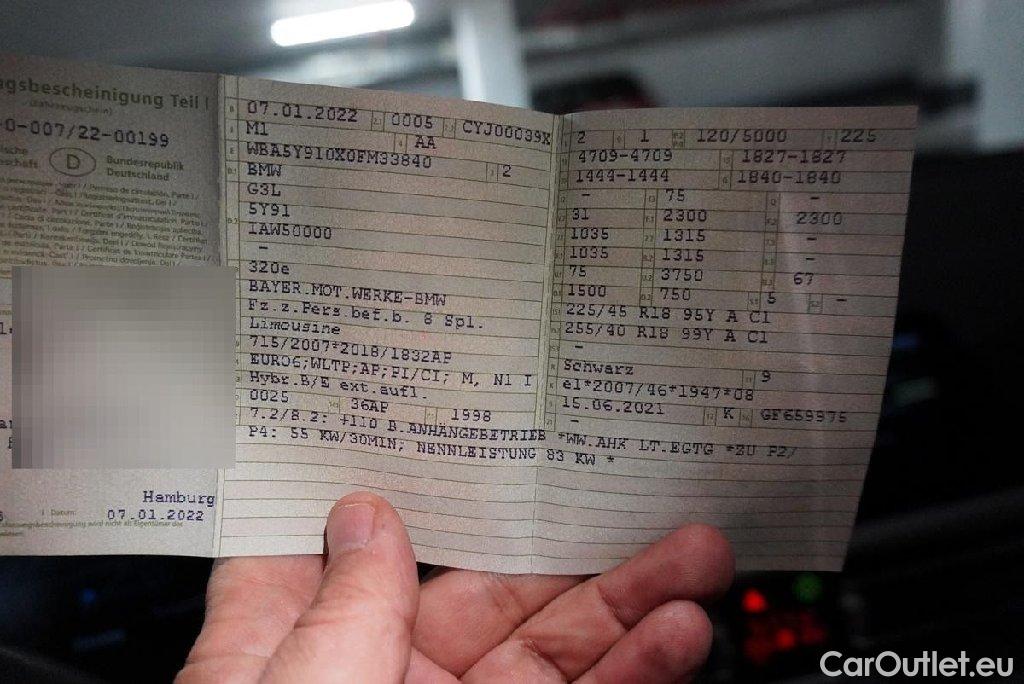 gsbescheinigung Teil I
(Fahrzeugschein)
-0-007/22-00199
D
Bundesrepublik
Deutschland
07.01.2022 0005 CYJ00039X
M1 AA
WBA5Y910X0FM33840 2
BMW
G3L
5Y91
IAW50000
–
320e
BAYER.MOT.WERKE-BMW
Fz.z.Pers.bef.b. 8 Spl.
Limousine
715/2007*2018/1832AP
EURO6;WLTP;AP;PI/CI; M, N1 I
Hybr.B/E ext.aufl.
0025 36AP 1998
7.2/8.2: +110 B.ANHÄNGEBETRIEB *WW.AHK LT.EGTG *ZU P2/
P4: 55 KW/30MIN; NENNLEISTUNG 83 KW *
2 1 120/5000 225
4709-4709 1827-1827
1444-1444 1840-1840
– 75 –
31 2300 2300
1035 1315 –
1035 1315 –
75 3750 67
1500 750 5 –
225/45 R18 95Y A C1
255/40 R18 99Y A C1
–
Schwarz 9
e1*2007/46*1947*08
15.06.2021 K GF659975
–
Hamburg
Datum:
07.01.2022
CarOutlet.eu